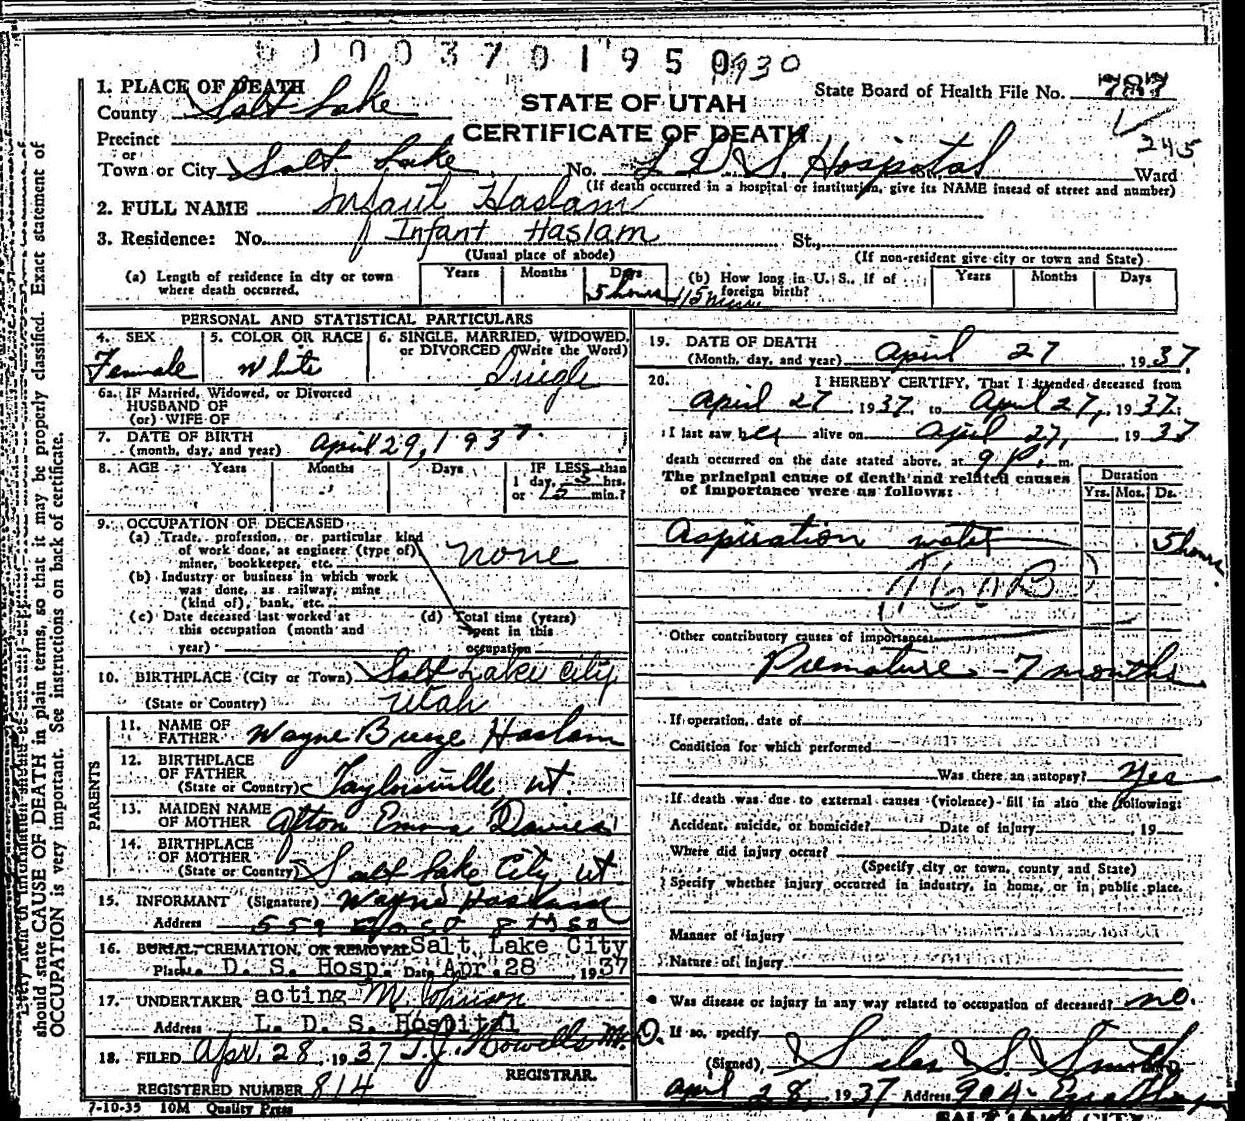 0 0 0 3 7 0 1 9 5 0 930
1. PLACE OF DEATH
STATE OF UTAH
CERTIFICATE OF DEATH
State Board of Health File No. 787
245
County Salt Lake
Precinct
or
Town or City Salt Lake No. L D. S. Hospital Ward
(If death occurred in a hospital or institution, give its NAME insead of street and number)
2. FULL NAME Infant Haslam
3. Residence: No. Infant Haslam St.,
(Usual place of abode) (If non-resident give city or town and State)
(a) Length of residence in city or town where death occurred. Years Months Days 5 hours 15 min
(b) How long in U. S., if of foreign birth? Years Months Days
PERSONAL AND STATISTICAL PARTICULARS
4. SEX Female
5. COLOR OR RACE White
6. SINGLE, MARRIED, WIDOWED, or DIVORCED (Write the Word) Single
6a. IF Married, Widowed, or Divorced
HUSBAND OF
(or) WIFE OF
7. DATE OF BIRTH
(month, day, and year) April 29, 1937.
8. AGE Years Months Days IF LESS than
1 day, 5 hrs.
or 15 min.?
9. OCCUPATION OF DECEASED
(a) Trade, profession, or particular kind
of work done, as engineer (type of)
miner, bookkeeper, etc. none
(b) Industry or business in which work
was done, as railway, mine
(kind of), bank, etc.
(c) Date deceased last worked at
this occupation (month and
year)
(d) Total time (years)
spent in this
occupation
10. BIRTHPLACE (City or Town) Salt Lake City
(State or Country) Utah
PARENTS
11. NAME OF
FATHER Wayne Breeze Haslam
12. BIRTHPLACE
OF FATHER
(State or Country) Taylorsville, ut.
13. MAIDEN NAME
OF MOTHER Afton Emma Davies
14. BIRTHPLACE
OF MOTHER
(State or Country) Salt Lake City ut
15. INFORMANT (Signature) Wayne Haslam
Address 559 8th So
16. BURIAL, CREMATION, OR REMOVAL Salt Lake City
Place L. D. S. Hosp. Date Apr. 28, 1937
17. UNDERTAKER acting M. Johnson
Address L. D. S. Hospital
18. FILED Apr. 28, 1937 T. J. Howells M.D.
REGISTRAR.
REGISTERED NUMBER 814
7-10-35 10M Quality Press
19. DATE OF DEATH
(Month, day, and year) April 27 1937.
20. I HEREBY CERTIFY, That I attended deceased from
April 27, 1937 to April 27, 1937.
I last saw her alive on April 27, 1937
death occurred on the date stated above, at 9 P. m.
The principal cause of death and related causes
of importance were as follows:
Duration
Yrs. Mos. Ds.
Aspiration 5 hours
Other contributory causes of importance:
Premature - 7 months
If operation, date of
Condition for which performed
Was there an autopsy? Yes
If death was due to external causes (violence) fill in also the following:
Accident, suicide, or homicide? Date of injury , 19
Where did injury occur?
(Specify city or town, county and State)
Specify whether injury occurred in industry, in home, or in public place.
Manner of injury
Nature of injury
Was disease or injury in any way related to occupation of deceased? no.
If so, specify
(Signed) Silas S. Smith
April 28, 1937 Address
SALT LAKE CITY
should state CAUSE OF DEATH in plain terms, so that it may be properly classified. Exact statement of
OCCUPATION is very important. See instructions on back of certificate.